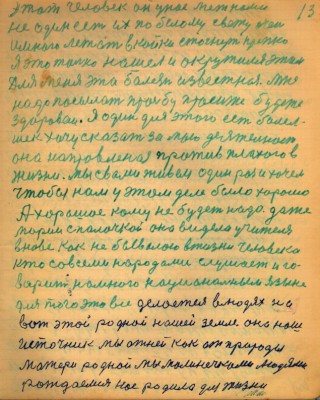 этот человек он умое метнами
не один сет их по белому свету как
много летят в койки стогнут крепко
Я это точно нашел и окружился этим
Для меня эта болезн известная. Мне
надо посылат прозбу просите будете
здоровая. Я один для этого ест болел-
щек хочу сказат за мою деятельност
она направленая против плахого в
жизни. Мы с вами живьем один раз и хочем
чтобы нам у этом деле было хорошо
А хорошое кому не будет надо. даже
тории с палочкой она видела учителя
внове как не бывалого в жизни человека
кто со всеми народами слушает и го-
варит полного национальным языке
для того это все делается в людях на
вот этой родной нашей земле она наш
источник мы от ней как от природы
матери родной мы малинечкими людями
рождаемся нас родила для жизни
13